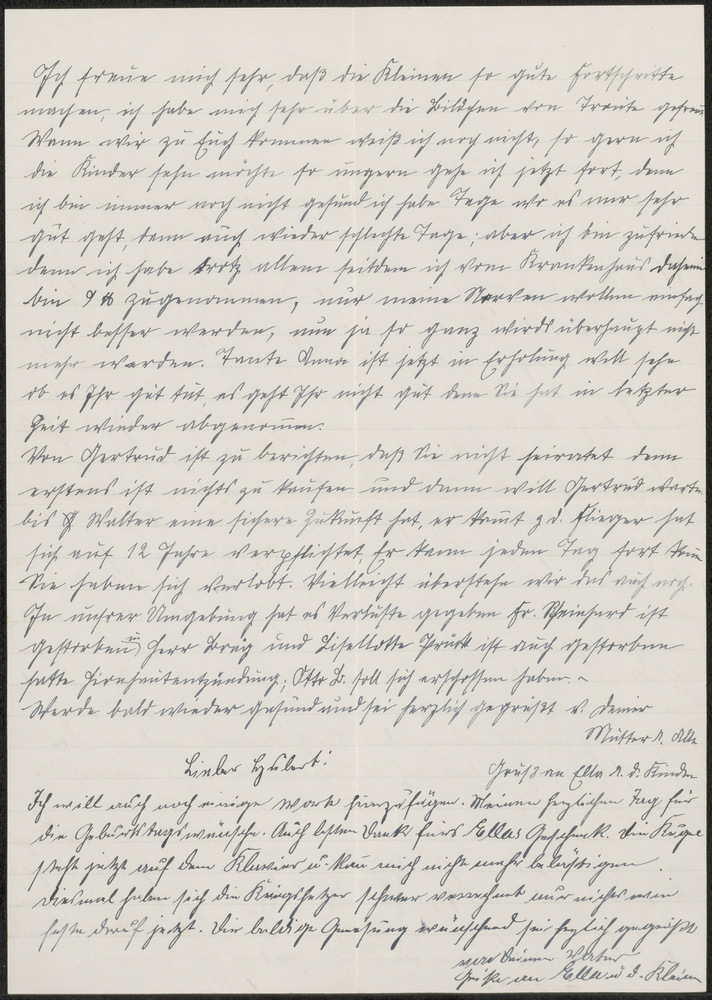 Ich freue mich sehr, daß die Kleinen so gute Fortschritte
machen, ich habe mich sehr über die Bildchen von Traute gefreut
Wann wir zu Euch kommen weiß ich noch nicht, so gern ich
die Kinder sehn möchte so ungern gehe ich jetzt fort, denn
ich bin immer noch nicht gesund ich habe Tage wo es mir sehr
gut geht, dann auch wieder schlechte Tage; aber ich bin zufrieden
denn ich habe trotz allem seitdem ich vom Krankenhaus daheim
bin 9 ℔ zugenommen, nur meine Nerven wollen einfach
nicht besser werden, nun ja so ganz wirds überhaupt nicht
mehr werden. Tante Anna ist jetzt in Erholung will sehn
ob es Ihr gut tut, es geht Ihr nicht gut denn Sie hat in letzter
Zeit wieder abgenommen.
Von Gertrud ist zu berichten, daß Sie nicht heiratet denn
erstens ist nichts zu kaufen und dann will Gertrud warten
bis Walter eine sichere Zukunft hat, er kommt z. d. Flieger hat
sich auf 12 Jahre verpflichtet, Er kann jeden Tag fort kommen
Sie haben sich verlobt. Vielleicht überstehn wir das auch noch.
In unsrer Umgebung hat es Verluste gegeben Fr. Reinhard ist
gestorben, Herr und Lisellotte ist auch gestorben
hatte Hirnhautentzündung; Otto B. soll sich erschossen haben. –
Werde bald wieder gesund und sei herzlich gegrüßt v. Deiner
Mutter u. Alle
Gruß an Ella u. d. Kinder
Lieber Hubert!
Ich will auch noch einige Worte hinzufügen. Meinen herzlichen für
die Geburtstagswünsche. Auch besten Dank fürs Ellas Geschenk. Die Kugel
steht jetzt auf dem Klavier u. kann mich nicht mehr belästigen.
Diesmal haben sich die Kriegshetzer schwer verrechnet nur nicht
feste drauf jetzt. Dir baldige Genesung wünschend sei herzlich gegrüßt
von Deinem Vater
Grüße an Ella u. d. Kleinen